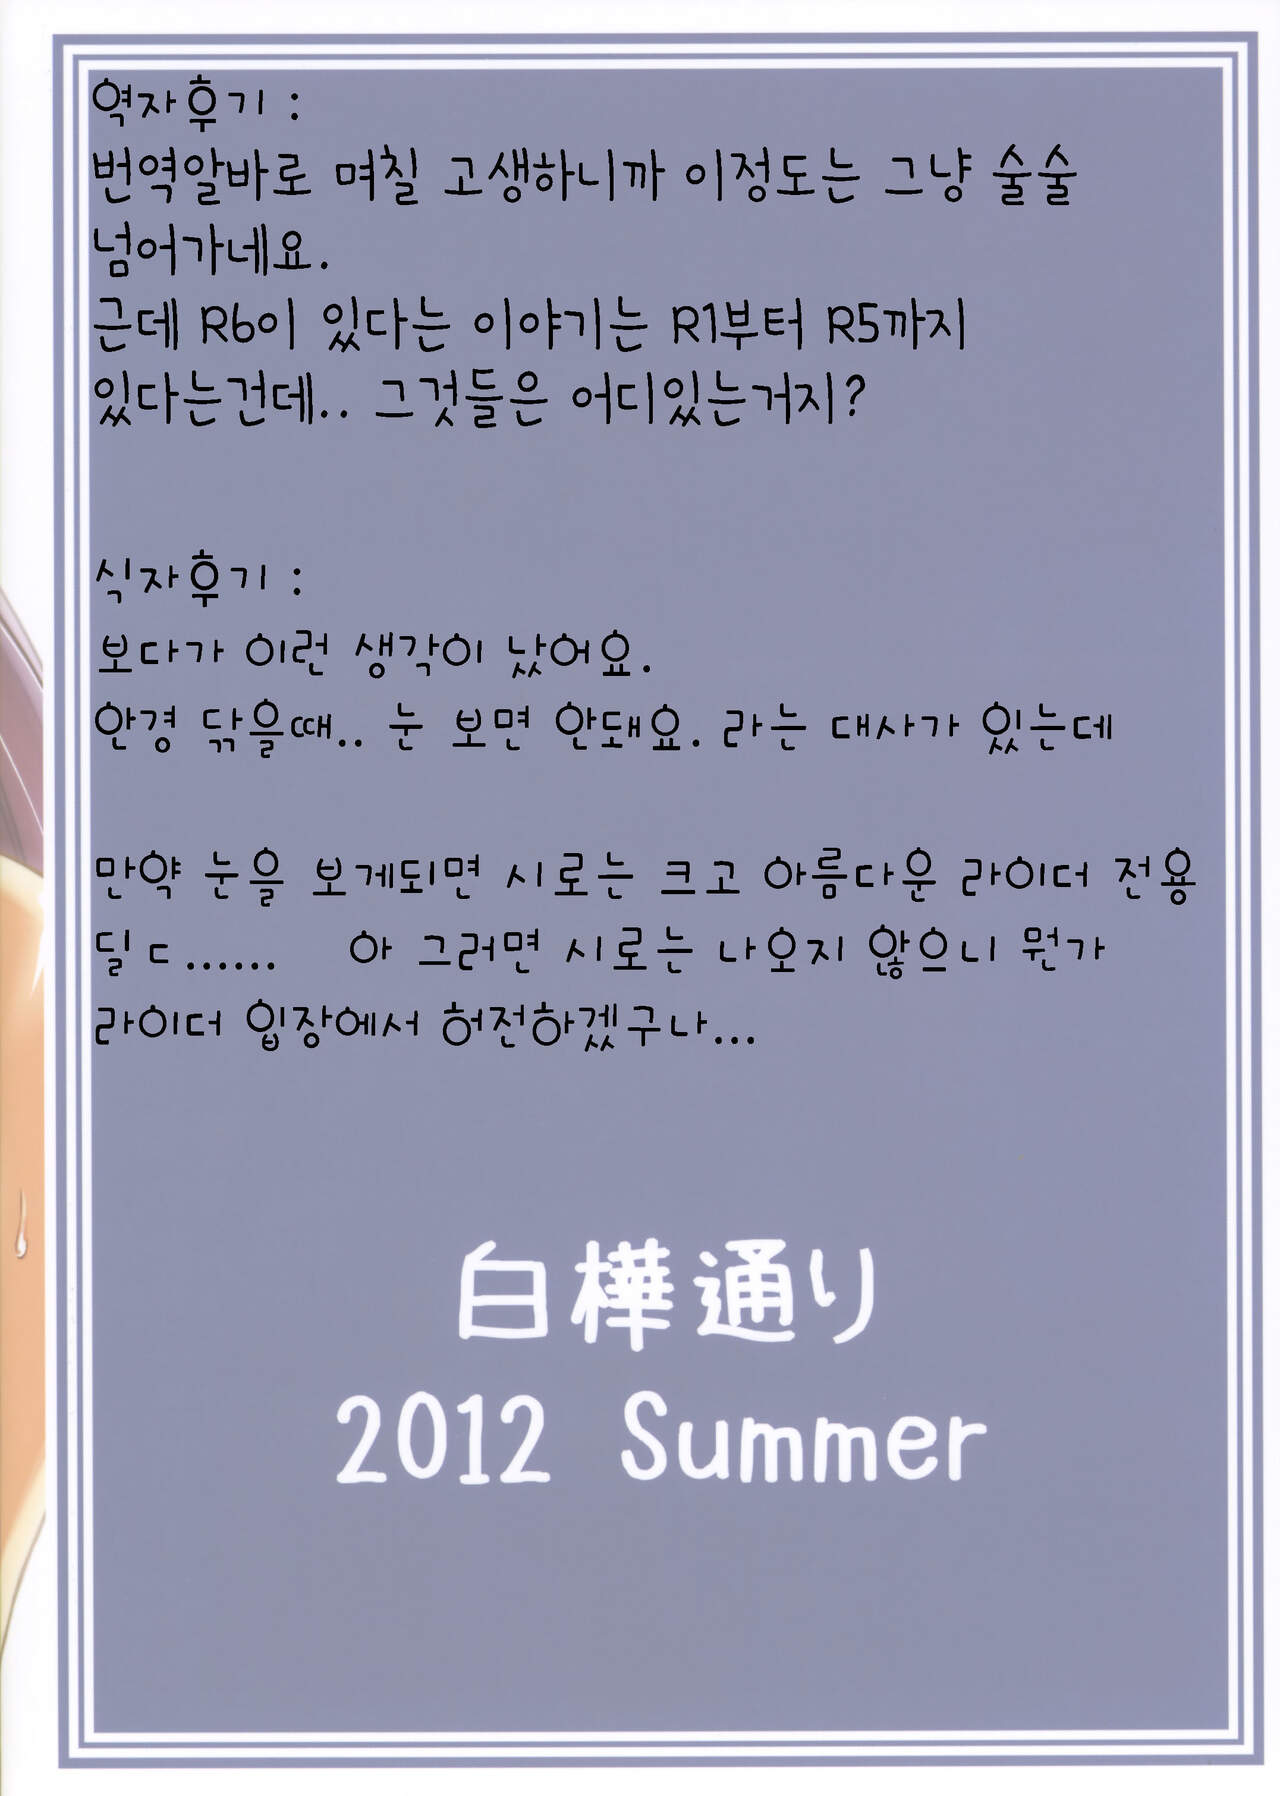 역자후기 :
번역알바로 며칠 고생하니까 이정도는 그냥 술술
넘어가네요.
근데 R6이 있다는 이야기는 R1부터 R5까지
있다는건데.. 그것들은 어디있는거지?
식자후기 :
보다가 이런 생각이 났어요.
안경 닦을때.. 눈 보면 안돼요. 라는 대사가 있는데
만약 눈을 보게되면 시로는 크고 아름다운 라이더 전용
딜ㄷ...... 아 그러면 시로는 나오지 않으니 뭔가
라이더 입장에서 허전하겠구나...
白樺通り
2012 Summer